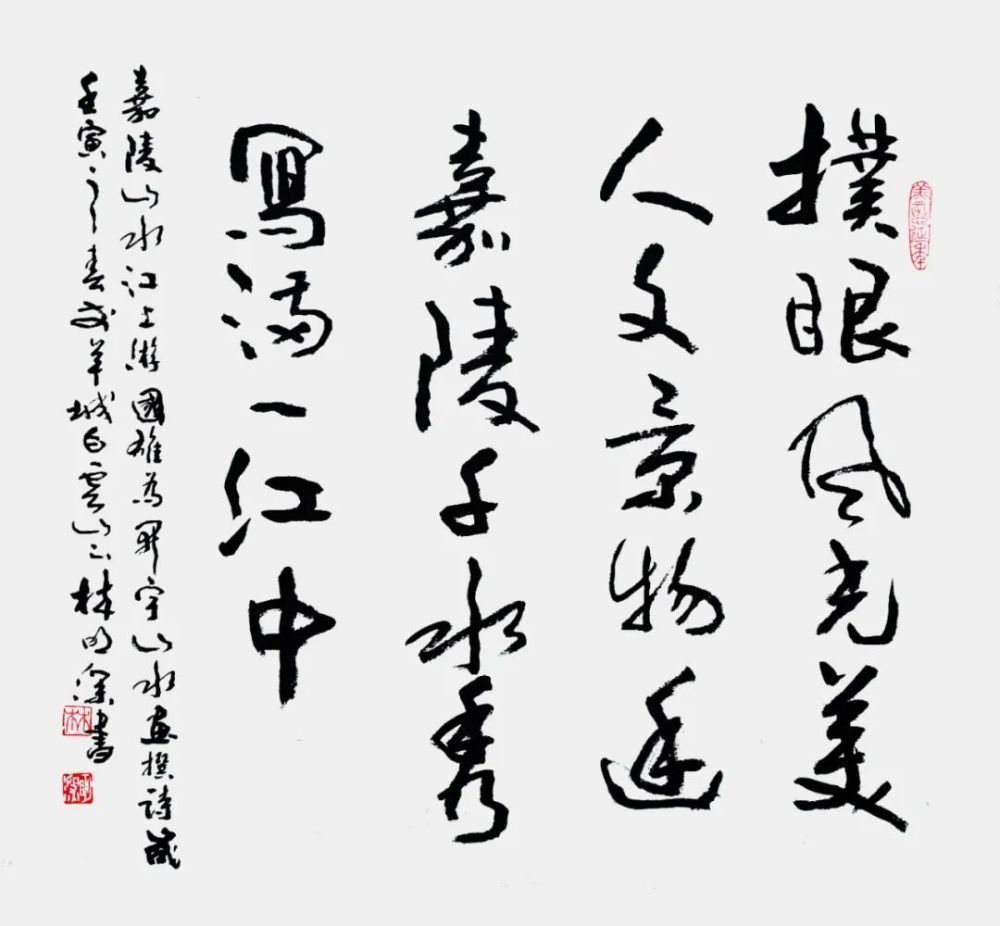 美意延年
撲眼風光美
人文景物逢
嘉陵千水秀
寫滿一红中
嘉陵山水江上游國雄為羿宇山水畫撰詩
壬寅之春羊城白雲山下林明深書
林